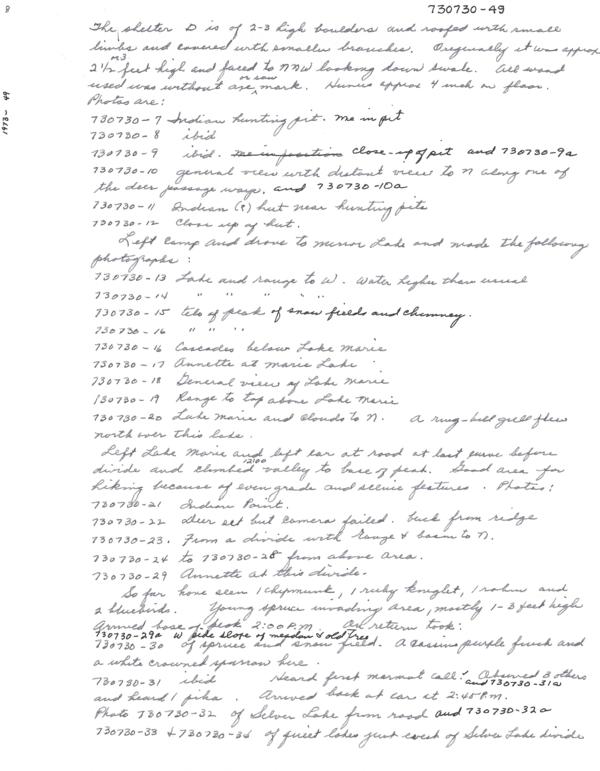 8
730730-49
1973- 49
The shelter D is of 2-3 high boulders and roofed with small
limbs and covered with smaller branches. Originally it was approx
2 1/2 or 3 feet high and faced to NNW looking down swale. All wood
used was without axe or saw mark. Humus approx 4 inch on floor.
Photos are:
730730-7 Indian hunting pit. me in pit
730730-8 ibid
730730-9 ibid. me in position close-up of pit and 730730-9a
730730-10 general view with distant view to N along one of
the deer passage ways, and 730730-10a
730730-11 Indian (?) hut near hunting pits
730730-12 Close up of hut.
Left camp and drove to mirror Lake and made the following
photographs:
730730-13 Lake and range to W. Water higher than usual
730730-14 " " " " "
730730-15 tele of peak of snow fields and chimney.
730730-16 " " " "
730730-16 Cascades below Lake Marie
730730-17 Annette at marie Lake
730730-18 General view of Lake Marie
730730-19 Range to top above Lake Marie
730730-20 Lake Marie and clouds to N. A ring-bill gull flew
north over this lake.
Left Lake Marie and left car at road at last curve before
divide and climbed 12:00 valley to base of peak. Good area for
hiking because of even grade and scenic features. Photos:
730730-21 Indian Point.
730730-22 Deer set but camera failed. buck from ridge
730730-23. From a divide with range & basin to N.
730730-24 to 730730-28 from above area.
730730-29 Annette at this divide.
So far have seen 1 chipmunk, 1 ruby kinglet, 1 robin and
2 bluebirds. Young spruce invading area, mostly 1-3 feet high
Arrived base of peak 2:00 P.M. On return took:
730730-29a W side slope of meadow & old tree
730730-30 of spruce and snow field. A cassins purple finch and
a white crowned sparrow here.
730730-31 ibid and 730730-31a Heard first marmot call. Observed 3 others
and heard 1 pika. Arrived back at car at 2:45 P.M.
Photo 730730-32 of Silver Lake from road and 730730-32a
730730-33 & 730730-34 of quiet lakes just east of Silver Lake divide